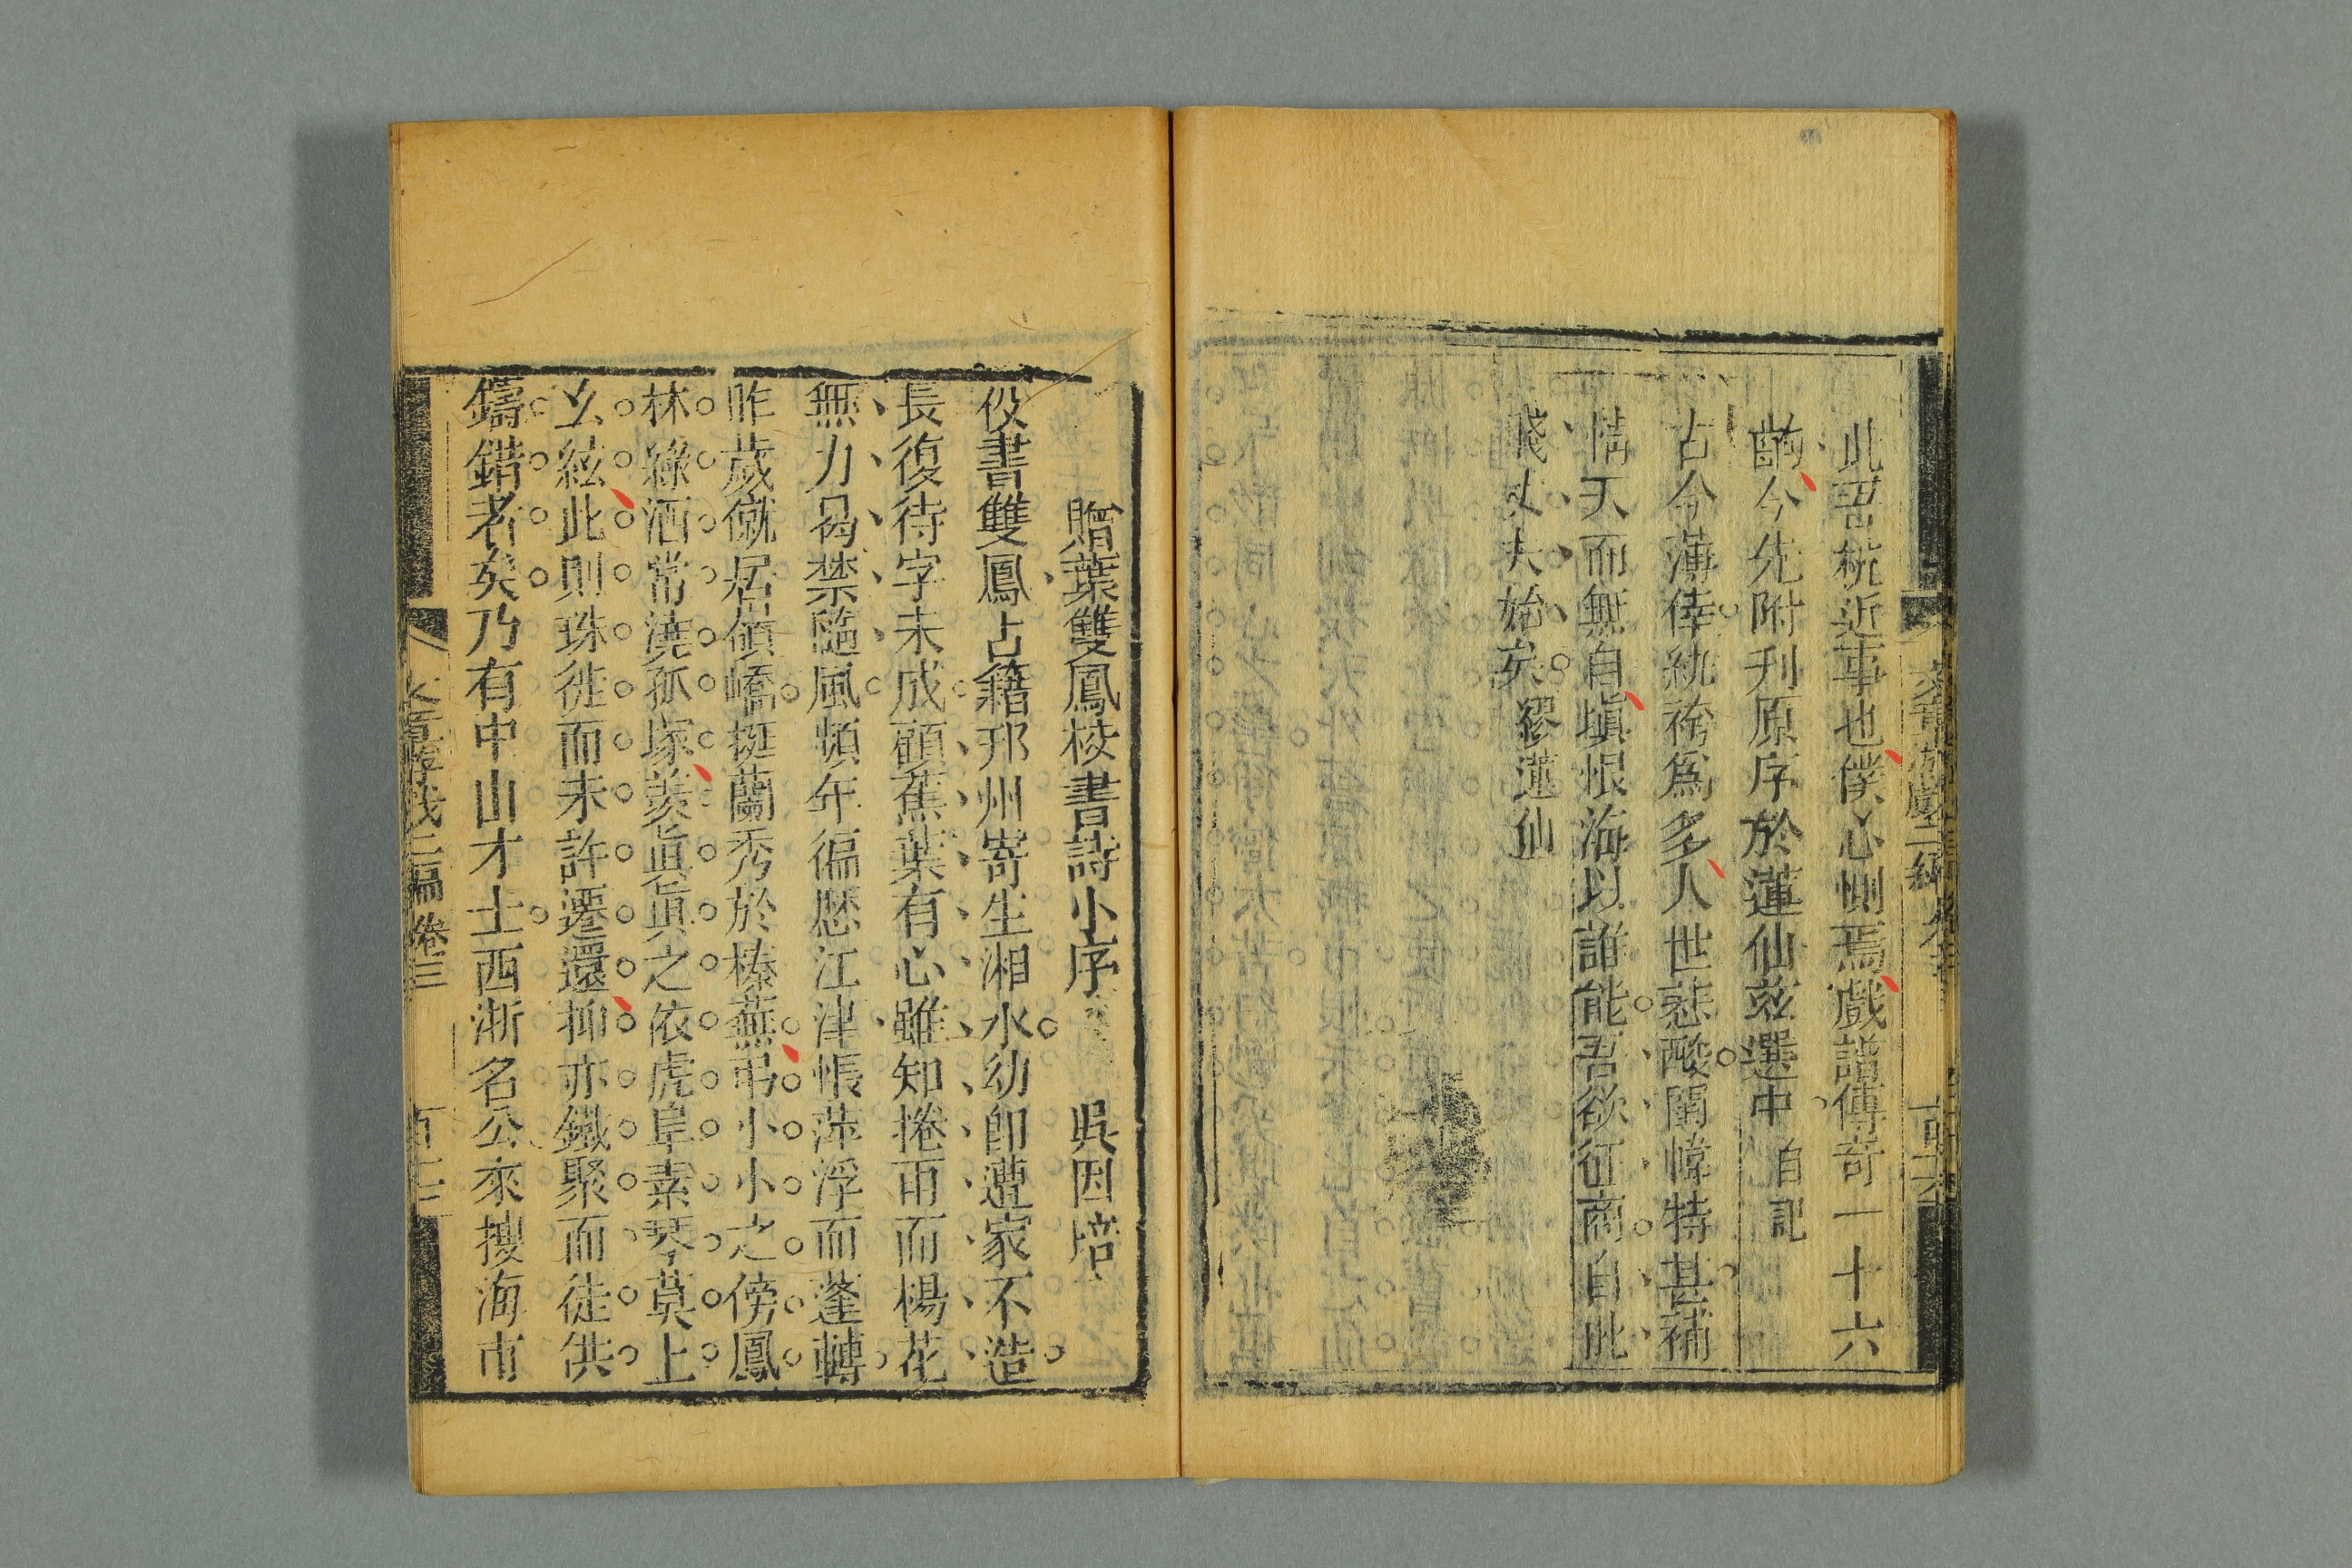 此吾杭近事也僕心惻焉戲譜傳奇一十六
齣今先附刋原序於蓮仙茲選中 自記
古今薄倖紈袴爲多人世悲酸閨幃特甚補
情天而無自塡恨海以誰能吾欲征商自此
賤丈夫始矣 繆蓮仙
贈葉雙鳳校書詩小序 吳因培
役書雙鳳占籍邗州寄生湘水幼卽遭家不造
長復待字未成顧蕉葉有心雖知捲雨而楊花
無力曷禁隨風頻年徧歷江津悵萍浮而蓬轉
昨歲僦居嶺嶠挺蘭秀於榛蕪弔小小之傍鳳
林綠酒常澆孤塚羨眞眞之依虎阜素琴莫上
幺絃此則珠徙而未許遷還抑亦鐵聚而徒供
鑄錯者矣乃有中山才士西浙名公來搜海市
文章游戲二編 卷三